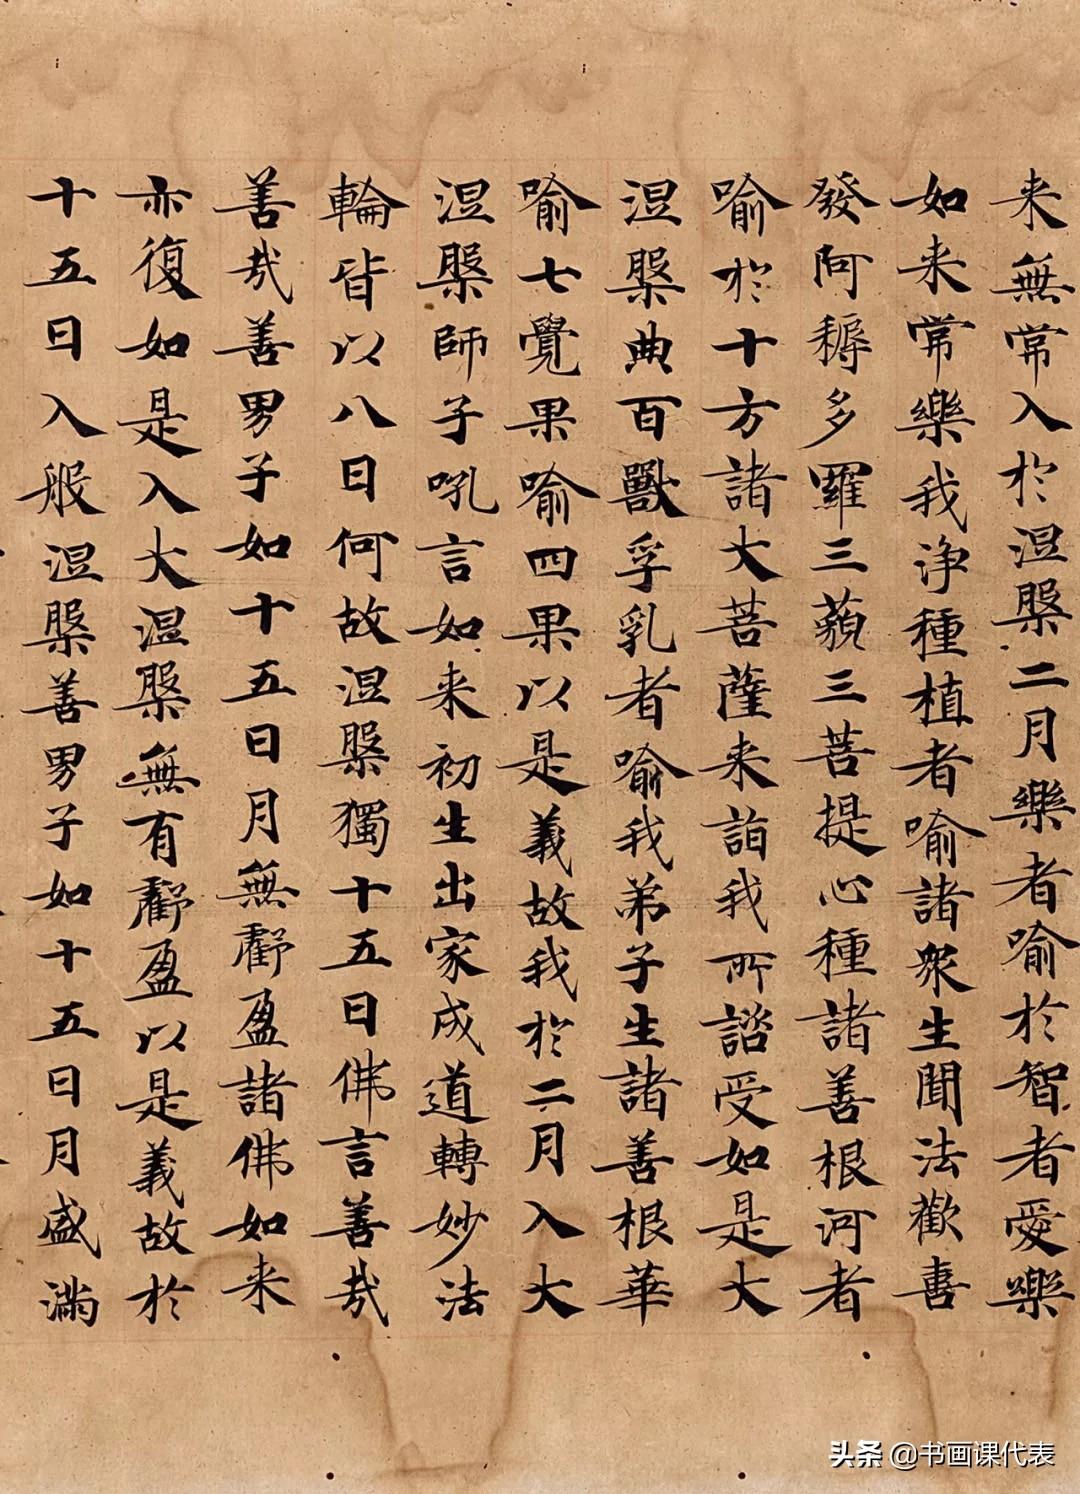 来無常入於涅槃二月樂者喻於智者愛樂
如来常樂我淨種植者喻諸衆生聞法歡喜
發阿耨多羅三藐三菩提心種諸善根河者
喻於十方諸大菩薩来詣我所諮受如是大
涅槃典百獸孚乳者喻我弟子生諸善根華
喻七覺果喻四果以是義故我於二月入大
涅槃師子吼言如来初生出家成道轉妙法
輪皆以八日何故涅槃獨十五日佛言善哉
善哉善男子如十五日月無虧盈諸佛如来
亦復如是入大涅槃無有虧盈以是義故於
十五日入般涅槃善男子如十五日月盛滿
头条 @书画课代表